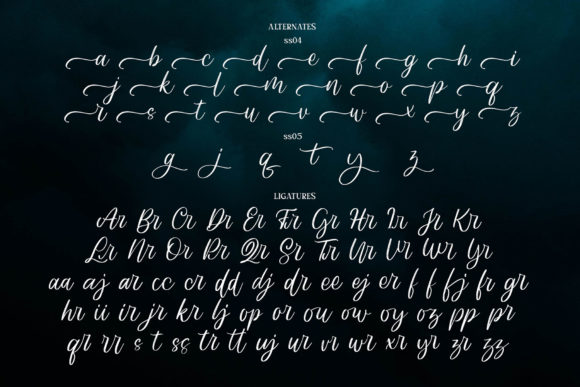 ALTERNATES
ss04
a b c d e f g h i
j k l m n o p q
r s t u v w x y z
ss05
g j q t y z
LIGATURES
Ar Br Cr Dr Er Fr Gr Hr Ir Jr Kr
Lr Nr Or Pr Qr Sr Tr Ur Vr Wr Yr
aa aj ar cc cr dd dj dr ee ej er f f fj fr gr
hr ii ir jr kr lj op or ou ow oy oz pp pr
qr rr s t ss tr tt uj ur vr wr xr yr zr zz